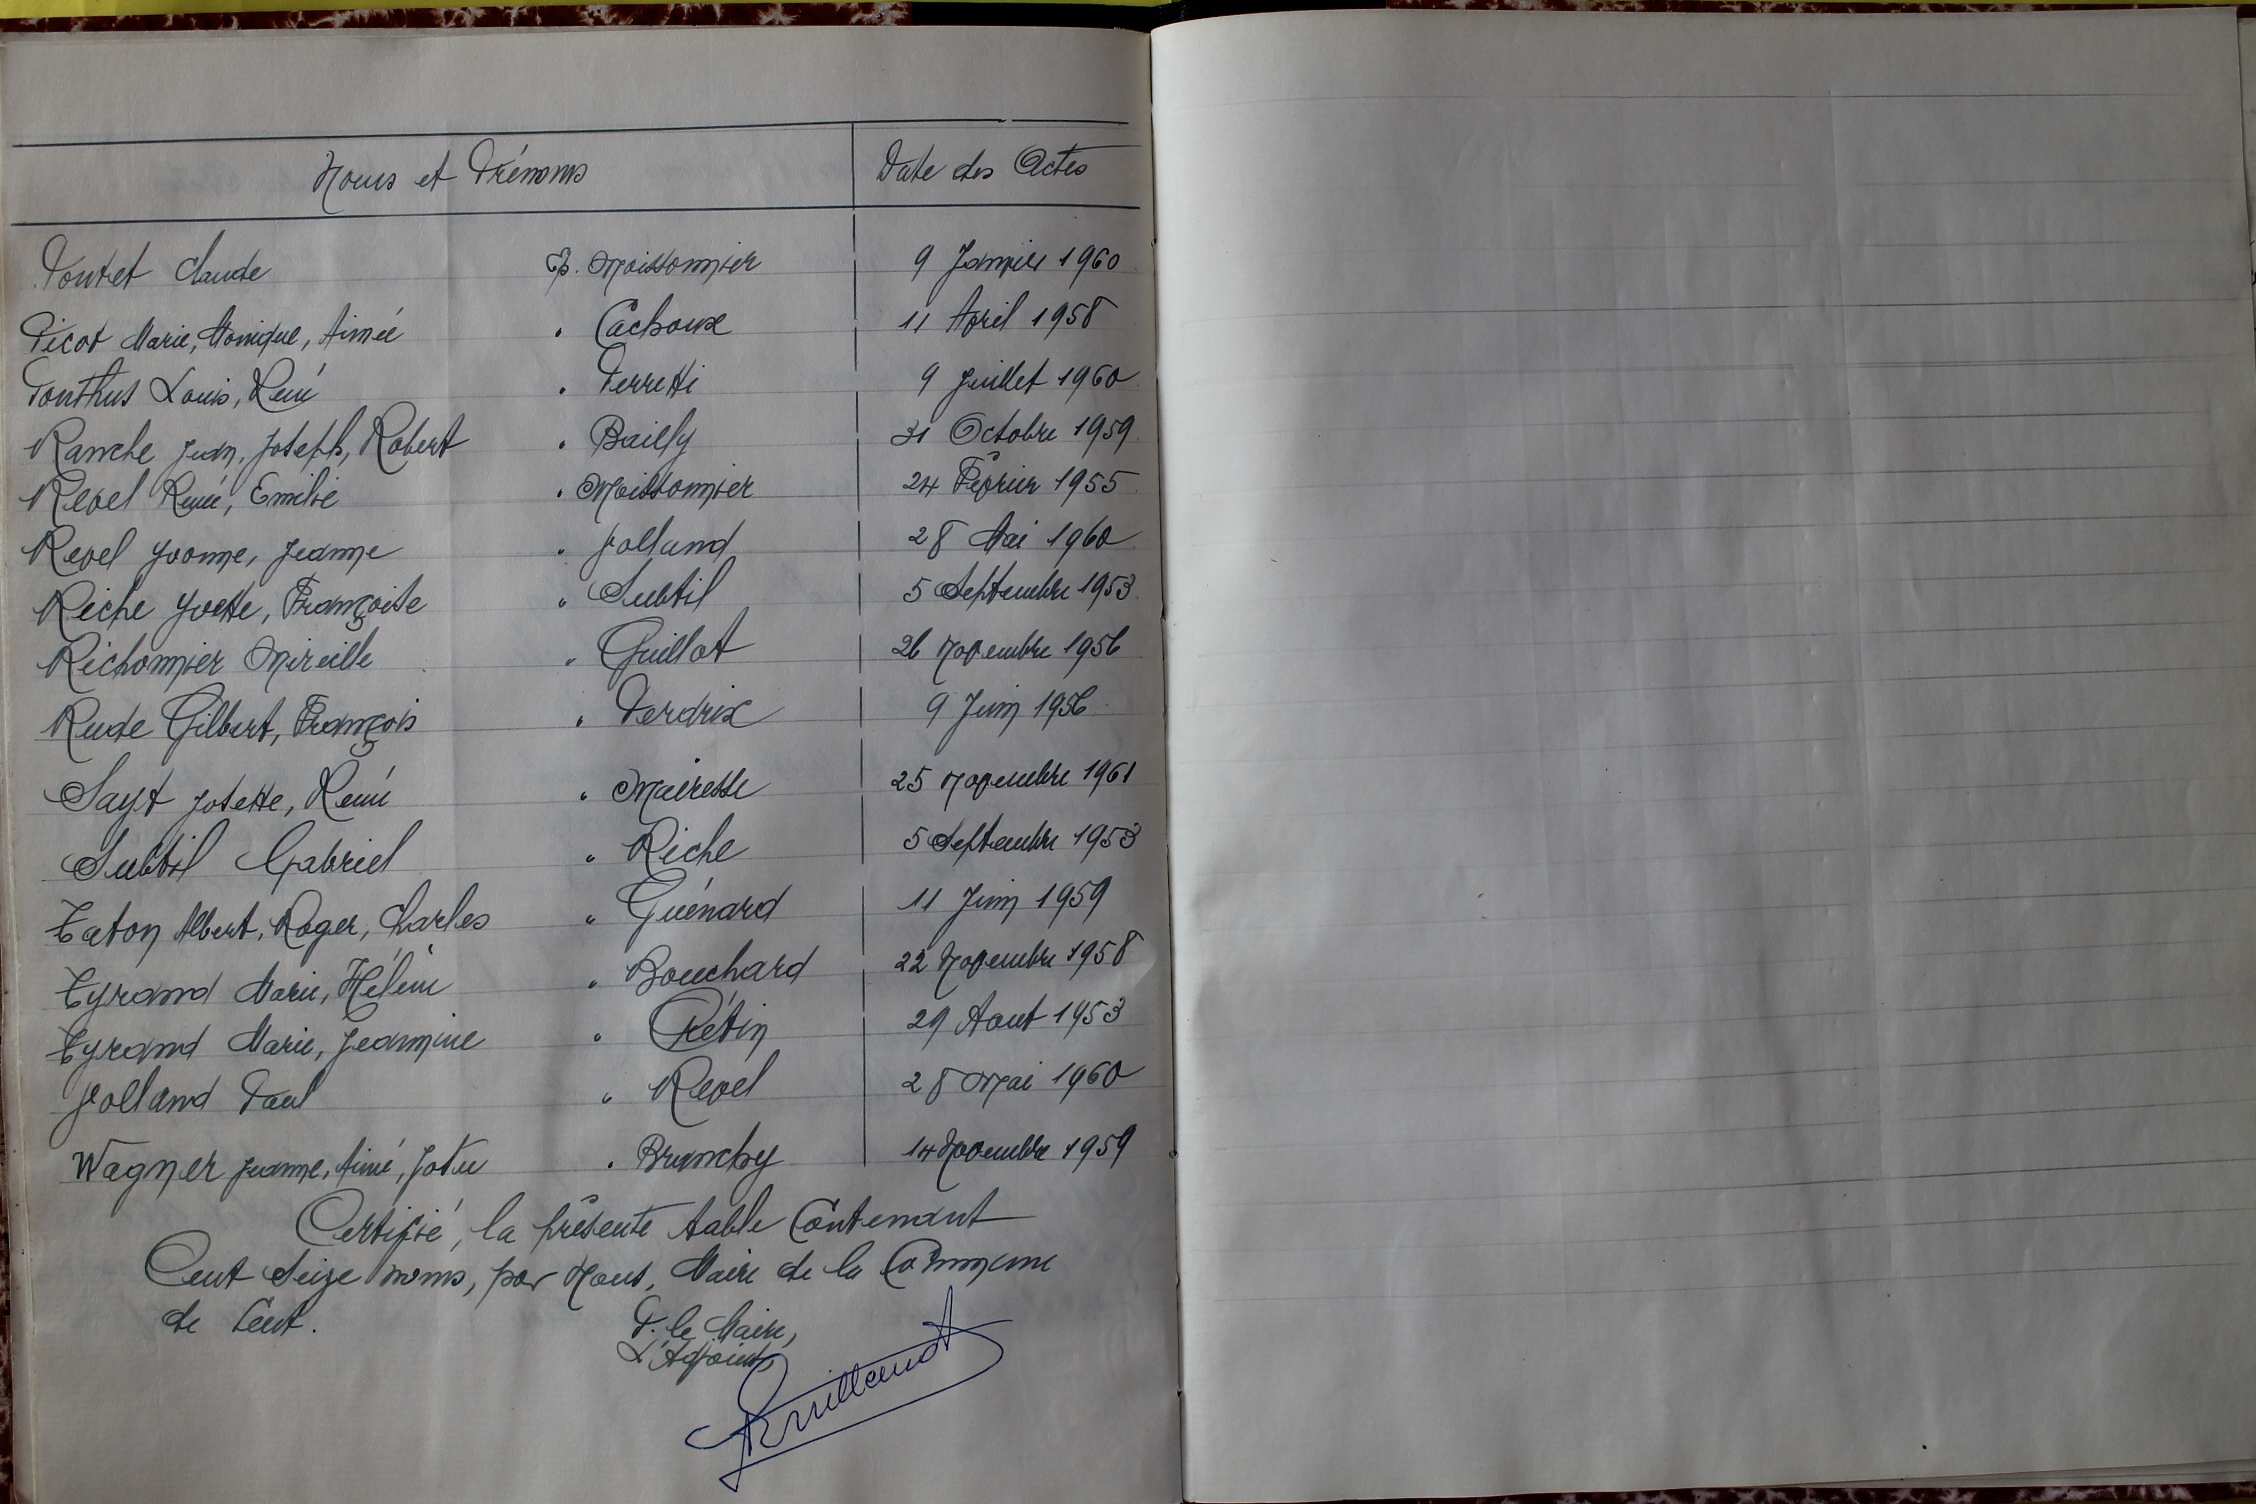 Noms et Prénoms Date des Actes
Pontet Claude Ep. Moissonnier 9 Janvier 1960
Picot Marie, Monique, Aimée " Cachoux 11 Avril 1958
Ponthus Louis, René " Perretti 9 Juillet 1960
Ranche Jean, Joseph, Robert " Bailly 31 Octobre 1959
Revel René, Emilie " Moissonnier 24 Février 1955
Revel Yvonne, Jeanne " Jolland 28 Mai 1960
Riche Yvette, Françoise " Subtil 5 Septembre 1953
Richonnier Mireille " Guillot 26 Novembre 1956
Rude Gilbert, François " Perdrix 9 Juin 1956
Sayt Josette, René " Mairesse 25 Novembre 1961
Subtil Gabriel " Riche 5 Septembre 1953
Taton Albert, Roger, Charles " Guénard 11 Juin 1959
Tyrand Marie, Hélène " Bouchard 22 Novembre 1958
Tyrand Marie, Jeannine " Rétin 29 Aout 1953
Jolland Paul " Revel 28 Mai 1960
Wagner Jeanne, Aimé, " 14 Novembre 1959
Certifié, la présente table Contenant
Cent Seize noms, par Nous, Maire de la Commune
de Cent.
P. le Maire,
L'Adjoint,